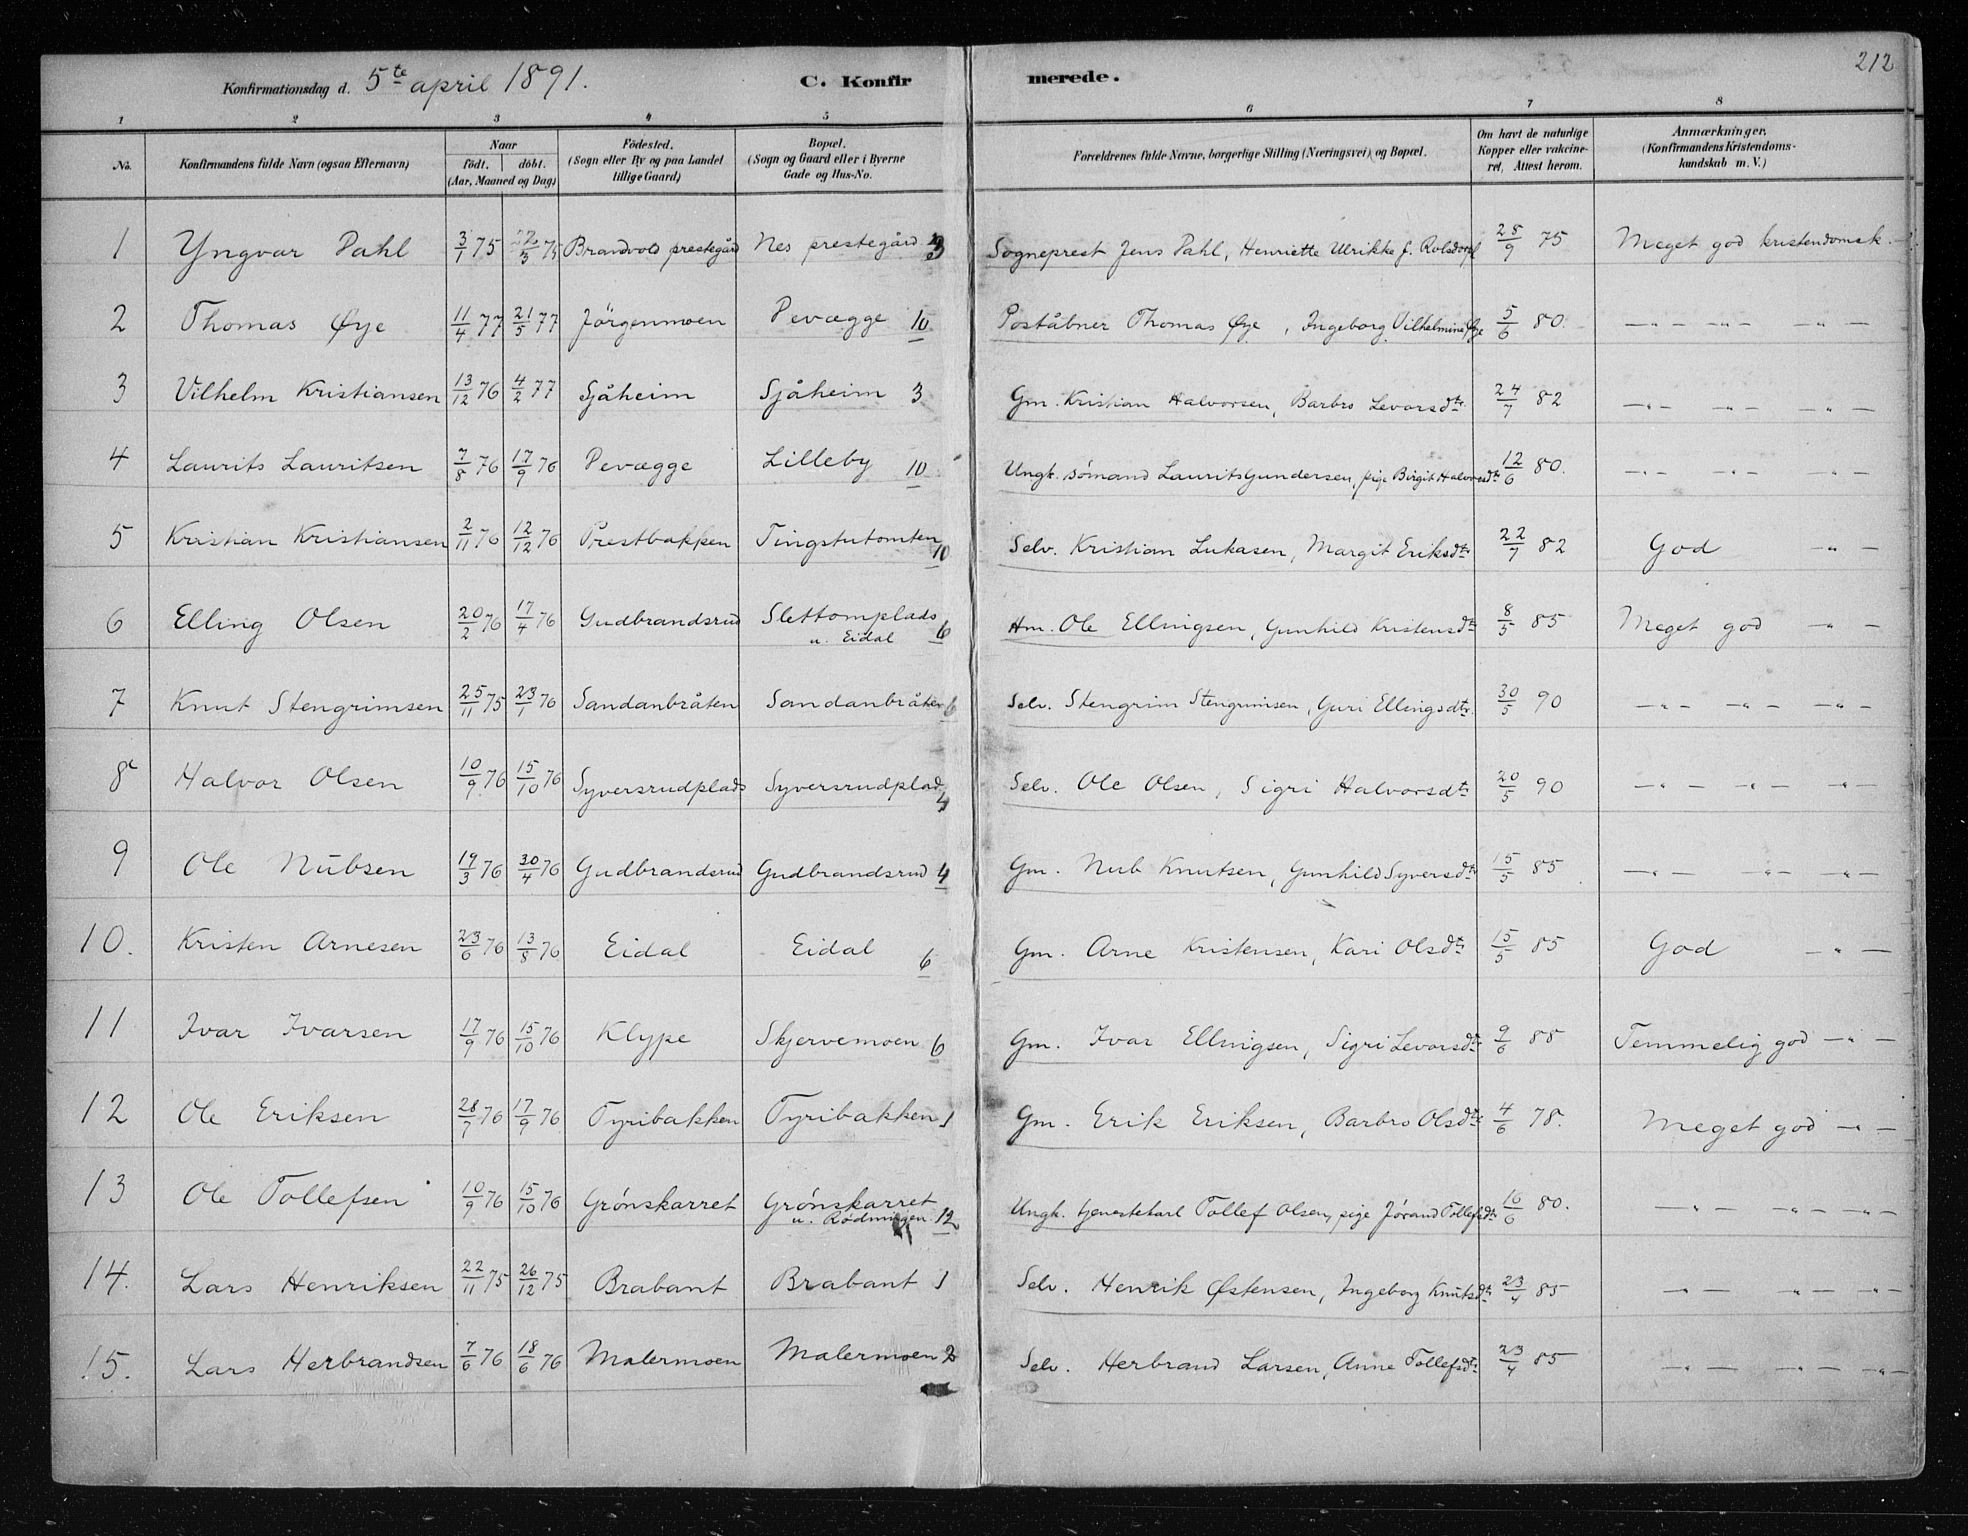 212
Konfirmationsdag d. 5te april 1891. C. Konfirmerede.
1 2 3 4 5 6 7 8
No. Konfirmandens fulde Navn (ogsaa Efternavn) Naar født. døbt. (Aar, Maaned og Dag) Fødested. (Sogn eller By og paa Landet tillige Gaard) Bopæl. (Sogn og Gaard eller i Byerne Gade og Hus-No. Forældrenes fulde Navne, borgerlige Stilling (Næringsvei) og Bopæl. Om havt de naturlige Kopper eller vakcineret, Attest herom. Anmærkninger. (Konfirmandens Kristendomskundskab m. V.)
1 Yngvar Dahl 3/1 75 22/3 75 Brandvold prestegård Nes prestegård 3 Sogneprest Jens Dahl, Henriette Ulrikke f. Rolsdorph 28/9 75 Meget god kristendomsk.
2 Thomas Øye 11/4 77 21/5 77 Jörgenmoen Pevægge 10 Poståbner Thomas Øye, Ingeborg Vilhelmine Øye 5/6 80. —„— —„— —„—
3 Vilhelm Kristiansen 13/12 76 4/2 77 Sjåheim Sjåheim 3 Gm. Kristian Halvorsen, Barbro Levorsdtr. 24/7 82 —„— —„— —„—
4 Laurits Lauritsen 7/8 76 17/9 76 Pevægge Lilleby 10 Ungk. sömand Laurits Gundersen, pige Birgit Halvorsdtr 12/6 80. —„— —„— —„—
5 Kristian Kristiansen 2/11 76 12/12 76 Prestbakken Tingstutomten 10 Selv. Kristian Lukasen, Margit Eriksdtr 22/7 82 God —„—
6 Elling Olsen 20/2 76 17/4 76 Gudbrandsrud Slettomplads u. Eidal 6 Hm. Ole Ellingsen, Gunhild Kristensdtr 8/5 85 Meget god —„—
7 Knut Stengrimsen 25/11 75 23/1 76 Sandanbråten Sandanbråten 6 Selv. Stengrim Stengrimsen, Guri Ellingsdtr. 30/5 90 —„— —„— —„—
8 Halvor Olsen 10/9 76 15/10 76 Syversrudplads Syversrudplad 4 Selv. Ole Olsen, Sigri Halvorsdtr 20/5 90 —„— —„— —„—
9 Ole Nubsen 19/3 76 30/4 76 Gudbrandsrud Gudbrandsrud 4 Gm. Nub Knutsen, Gunhild Syversdtr 15/5 85 —„— —„— —„—
10. Kristen Arnesen 23/6 76 13/8 76 Eidal Eidal 6 Gm. Arne Kristensen, Kari Olsdtr 15/5 85 God —„—
11 Ivar Ivarsen 17/9 76 15/10 76 Klype Skjervemoen 6 Gm. Ivar Ellingsen, Sigri Levorsdtr 9/6 88 Temmelig god —„—
12 Ole Eriksen 28/7 76 17/9 76 Tyribakken Tyribakken 1 Gm. Erik Eriksen, Barbro Olsdtr 4/6 78. Meget god —„—
13 Ole Tollefsen 10/9 76 15/10 76 Grónskarret Grónskarret u. Rødningen. 12 Ungk. tjenestekarl Tollef Olsen, pige Jórand Tollefsdtr 16/6 80. —„— —„— —„—
14. Lars Henriksen 22/11 75 26/12 75 Brabant Brabant 1 Selv. Henrik Østensen, Ingeborg Knutsdtr 23/4 85 —„— —„— —„—
15. Lars Herbrandsen 7/6 76 18/6 76 Malermoen Malermoen 2 Selv. Herbrand Larsen, Anne Tollefsdtr 23/4 85 —„— —„— —„—